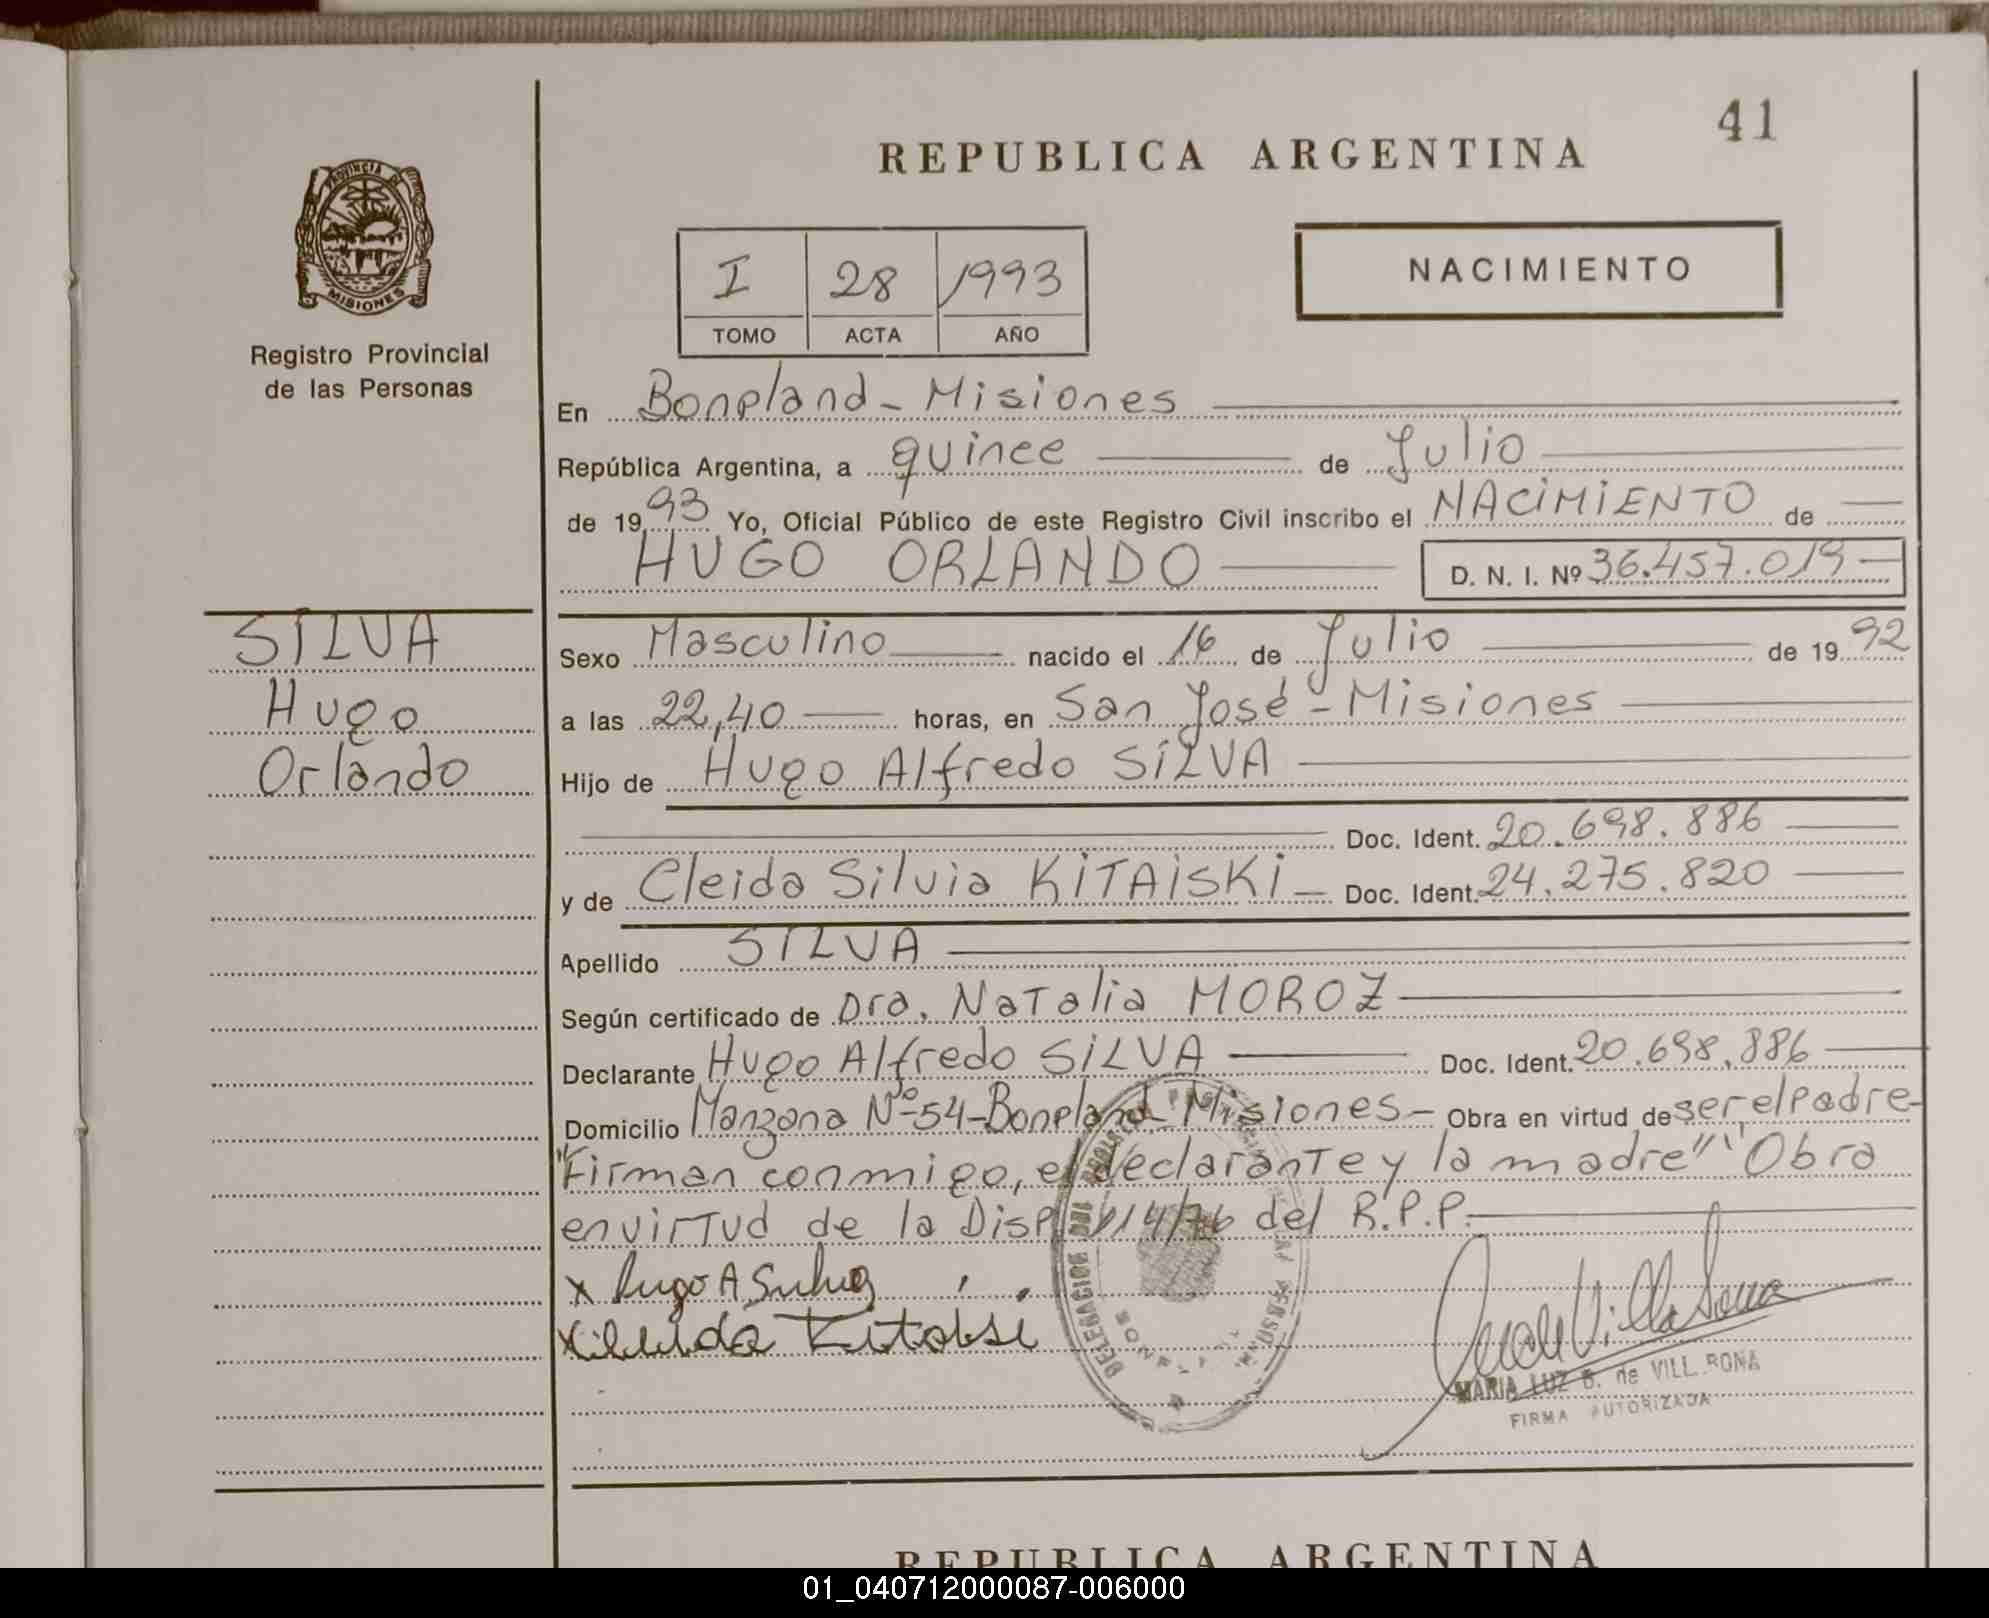 41
REPUBLICA ARGENTINA
PROVINCIA DE
MISIONES
Registro Provincial
de las Personas
I 28 1993
TOMO ACTA AÑO
NACIMIENTO
En Bonpland - Misiones
República Argentina, a quince de Julio
de 1993 Yo, Oficial Público de este Registro Civil inscribo el NACIMIENTO de
HUGO ORLANDO D. N. I. Nº 36.457.019
SILVA
Hugo
Orlando
Sexo Masculino nacido el 16 de Julio de 1992
a las 22,40 horas, en San José - Misiones
Hijo de Hugo Alfredo SILVA
Doc. Ident. 20.698.886
y de Cleida Silvia KITAISKI Doc. Ident. 24.275.820
Apellido SILVA
Según certificado de Dra. Natalia MOROZ
Declarante Hugo Alfredo SILVA Doc. Ident. 20.698.886
Domicilio Manzana Nº 54 - Bonpland - Misiones - Obra en virtud de ser el Padre -
"Firman conmigo, el declarante y la madre" "Obra
en virtud de la Disp. 114/76 del R.P.P.
x Hugo A Silva
DELEGACION DEL
MARIA LUZ B. de VILL RONA
FIRMA AUTORIZADA
REPUBLICA ARGENTINA
01_040712000087-006000